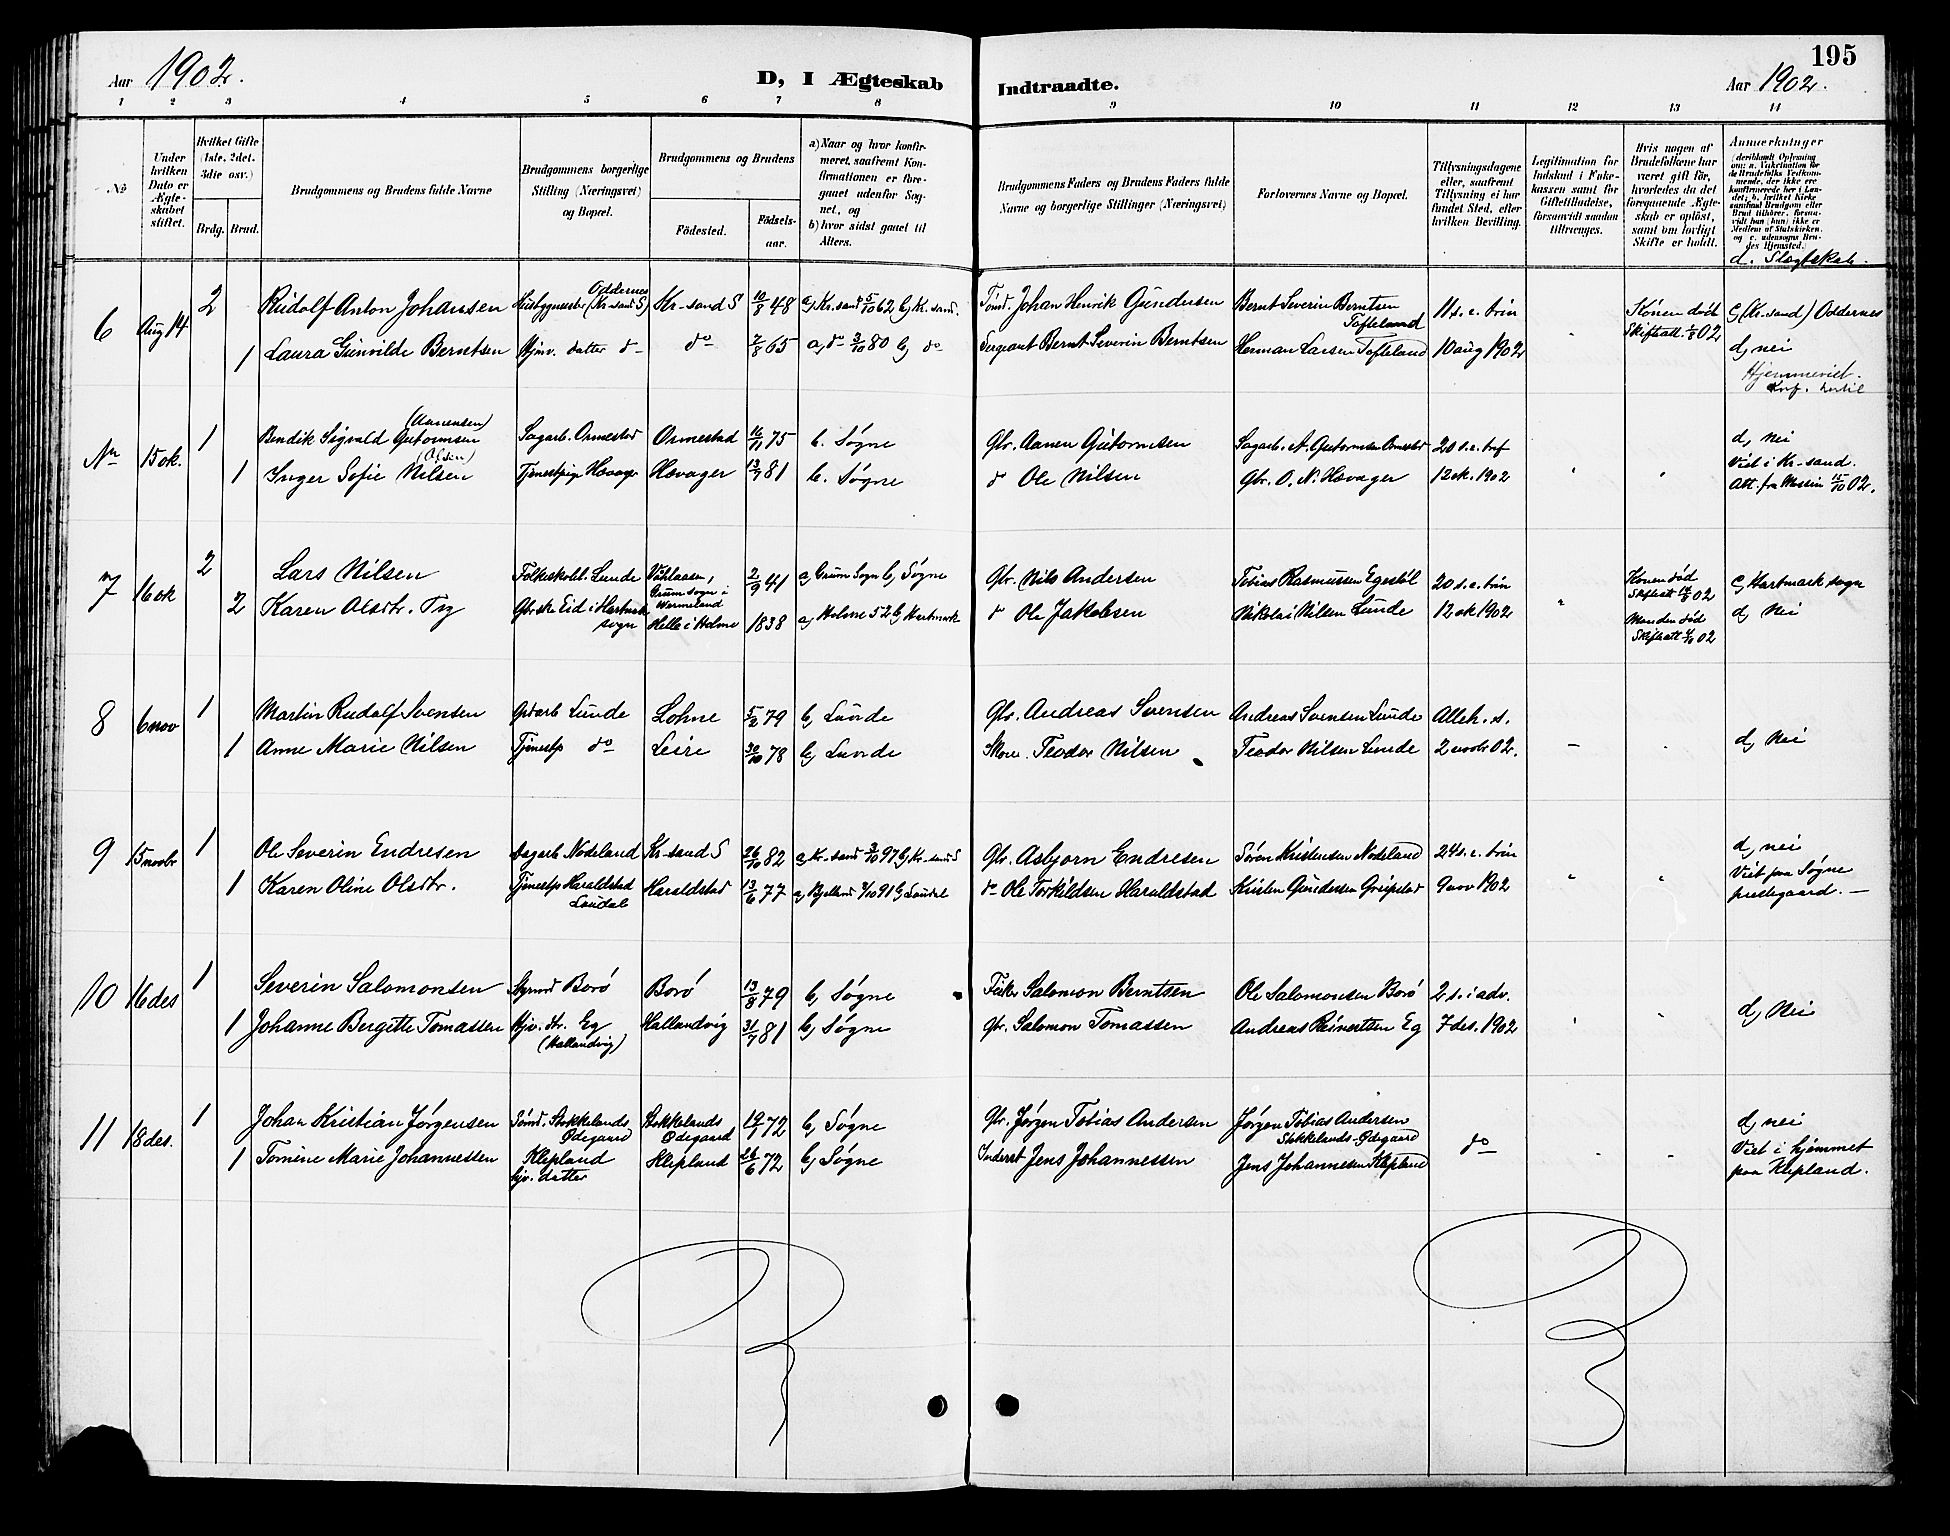 195
Aar 1902.
D, I Ægteskab Indtraadte.
Aar 1902.
1 2 3 4 5 6 7 8 9 10 11 12 13 14
No
Under hvilken Dato er Ægteskabet stiftet.
Hvilket Gifte (1ste, 2det, 3die osv.)
Brdg. Brud.
Brudgommens og Brudens fulde Navne
Brudgommens borgerlige Stilling (Næringsvei) og Bopæl.
Brudgommens og Brudens
Födested.
Födselsaar.
a) Naar og hvor konfirmeret, saafremt Konfirmationen er foregaaet udenfor Sognet, og
b) hvor sidst gaaet til Alters.
Brudgommens Faders og Brudens Faders fulde Navne og borgerlige Stillinger (Næringsvei)
Forlovernes Navne og Bopæl.
Tillysningsdagene eller, saafremt Tillysning ei har fundet Sted, efter hvilken Bevilling.
Legitimation for Indskud i Enkekassen samt for Giftetilladelse, forsaavidt saadan tiltrænges.
Hvis nogen af Brudefolkene har været gift før, hvorledes da det foregaaende Ægteskab er opløst, samt om lovligt Skifte er holdt.
Anmærkninger
d. Slægtskab.
6 Aug 14 2 Rudolf Anton Johansen Oddernes (Kr-sand S) Kr-sand S 10/8 48 a) Kr.sand 5/10 62 b) Kr.sand. Tømd. Johan Henrik Gundersen Bernt Severin Berntsen Tofteland 11 s. e. trin Konen død Skifteatt. 02 c) (Kr.sand) Oddernes
1 Laura Gunvilde Berntsen Hjmv. datter do do 7/8 65 a) do 3/10 80 b) do Sergeant Bernt Severin Berntsen Herman Larsen Tofteland 10 aug 1902 d) nei
Hjemmeviet.
Nr 15 ok. 1 Bendik Sigvald Gutormsen (Aanensen) Sagarb. Ormestad Ormestad 16/11 75 b. Søgne Gbr. Aanen Gutormsen Sagarb. A. Gutormsen Ormestad 20 s. e. tref d) Nei
1 Inger Sofie Nilsen (Olsen) Tjenestpige Hovager Hovager 13/7 81 b. Søgne d Ole Nilsen Gbr. O. N. Hovager 12 ok. 1902 Viet i Kr-sand.
02.
7 16 ok 2 Lars Nilsen Folkeskol. Lunde Grumsogn i Wermeland 2/9 41 a) Grum Sogn b) Søgne Gbr. Nils Andersen Tobias Rasmussen Egestøl 20 s. e. trin Konen død Skifteatt 02 c) Hartmark sogn
2 Karen Olsdtr. Try Eid i Hartmark sogn Helle i Holme 1838 a) Holme 52 b) Hartmark d Ole Jakobsen Nikolai Nilsen Lunde 12 ok 1902 Manden død Skifteatt 02 d) Nei
8 6 nov 1 Martin Rudolf Svensen Lunde Lohne 5/2 79 b) Lunde Gbr. Andreas Svensen Andreas Svensen Lunde Alleh. s.
1 Anne Marie Nilsen Tjenestp do Leire 30/10 78 b) Lunde Skom. Teodor Nilsen Teodor Nilsen Lunde 2 novbr 02. d) Nei
9 15 novbr 1 Ole Severin Endresen Dagarb Nodeland Kr-sand S 26/10 82 a) Kr-sand 3/10 97 b) Kr-sand S Gbr. Asbjørn Endresen Søren Kristensen Nodeland 24 s. e. trin d) nei
1 Karen Oline Olsdtr. Tjenestp Haraldstad Laudal Haraldstad 13/6 77 a) Bjelland 91 b) Laudal do Ole Torkildsen Haraldstad Kristen Gundersen Greipstad 9 nov 1902 Viet paa Søgne prestegaard.
10 16 des 1 Severin Salomonsen Styrmd Borø Borø 13/8 79 b) Søgne Fisker Salomon Berntsen Ole Salomonsen Borø 2 s. i adv.
1 Johanne Bergitte Tomassen Hjv. dtr. Eg (Hallandvig) Hallandvig 31/7 81 b) Søgne gbr. Salomon Tomassen Andreas Reinertsen Eg 7 des. 1902 d) Nei
11 18 des. 1 Johan Kristian Jørgensen Tømd. Stokkelands Ødegaard Stokkelands Ødegaard 19/7 72 b) Søgne Gbr. Jørgen Tobias Andersen Jørgen Tobias Andersen Stokkelands-Ødegaard do d) nei
1 Tomine Marie Johannessen Klepland hjv. datter Klepland 26/6 72 b) Søgne Inderst Jens Johannessen Jens Johannessen Klepland Viet i hjemmet paa Klepland.